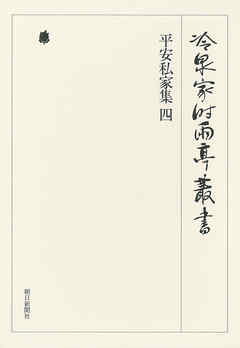 冷泉家時雨亭叢書
平安私家集 四
朝日新聞社